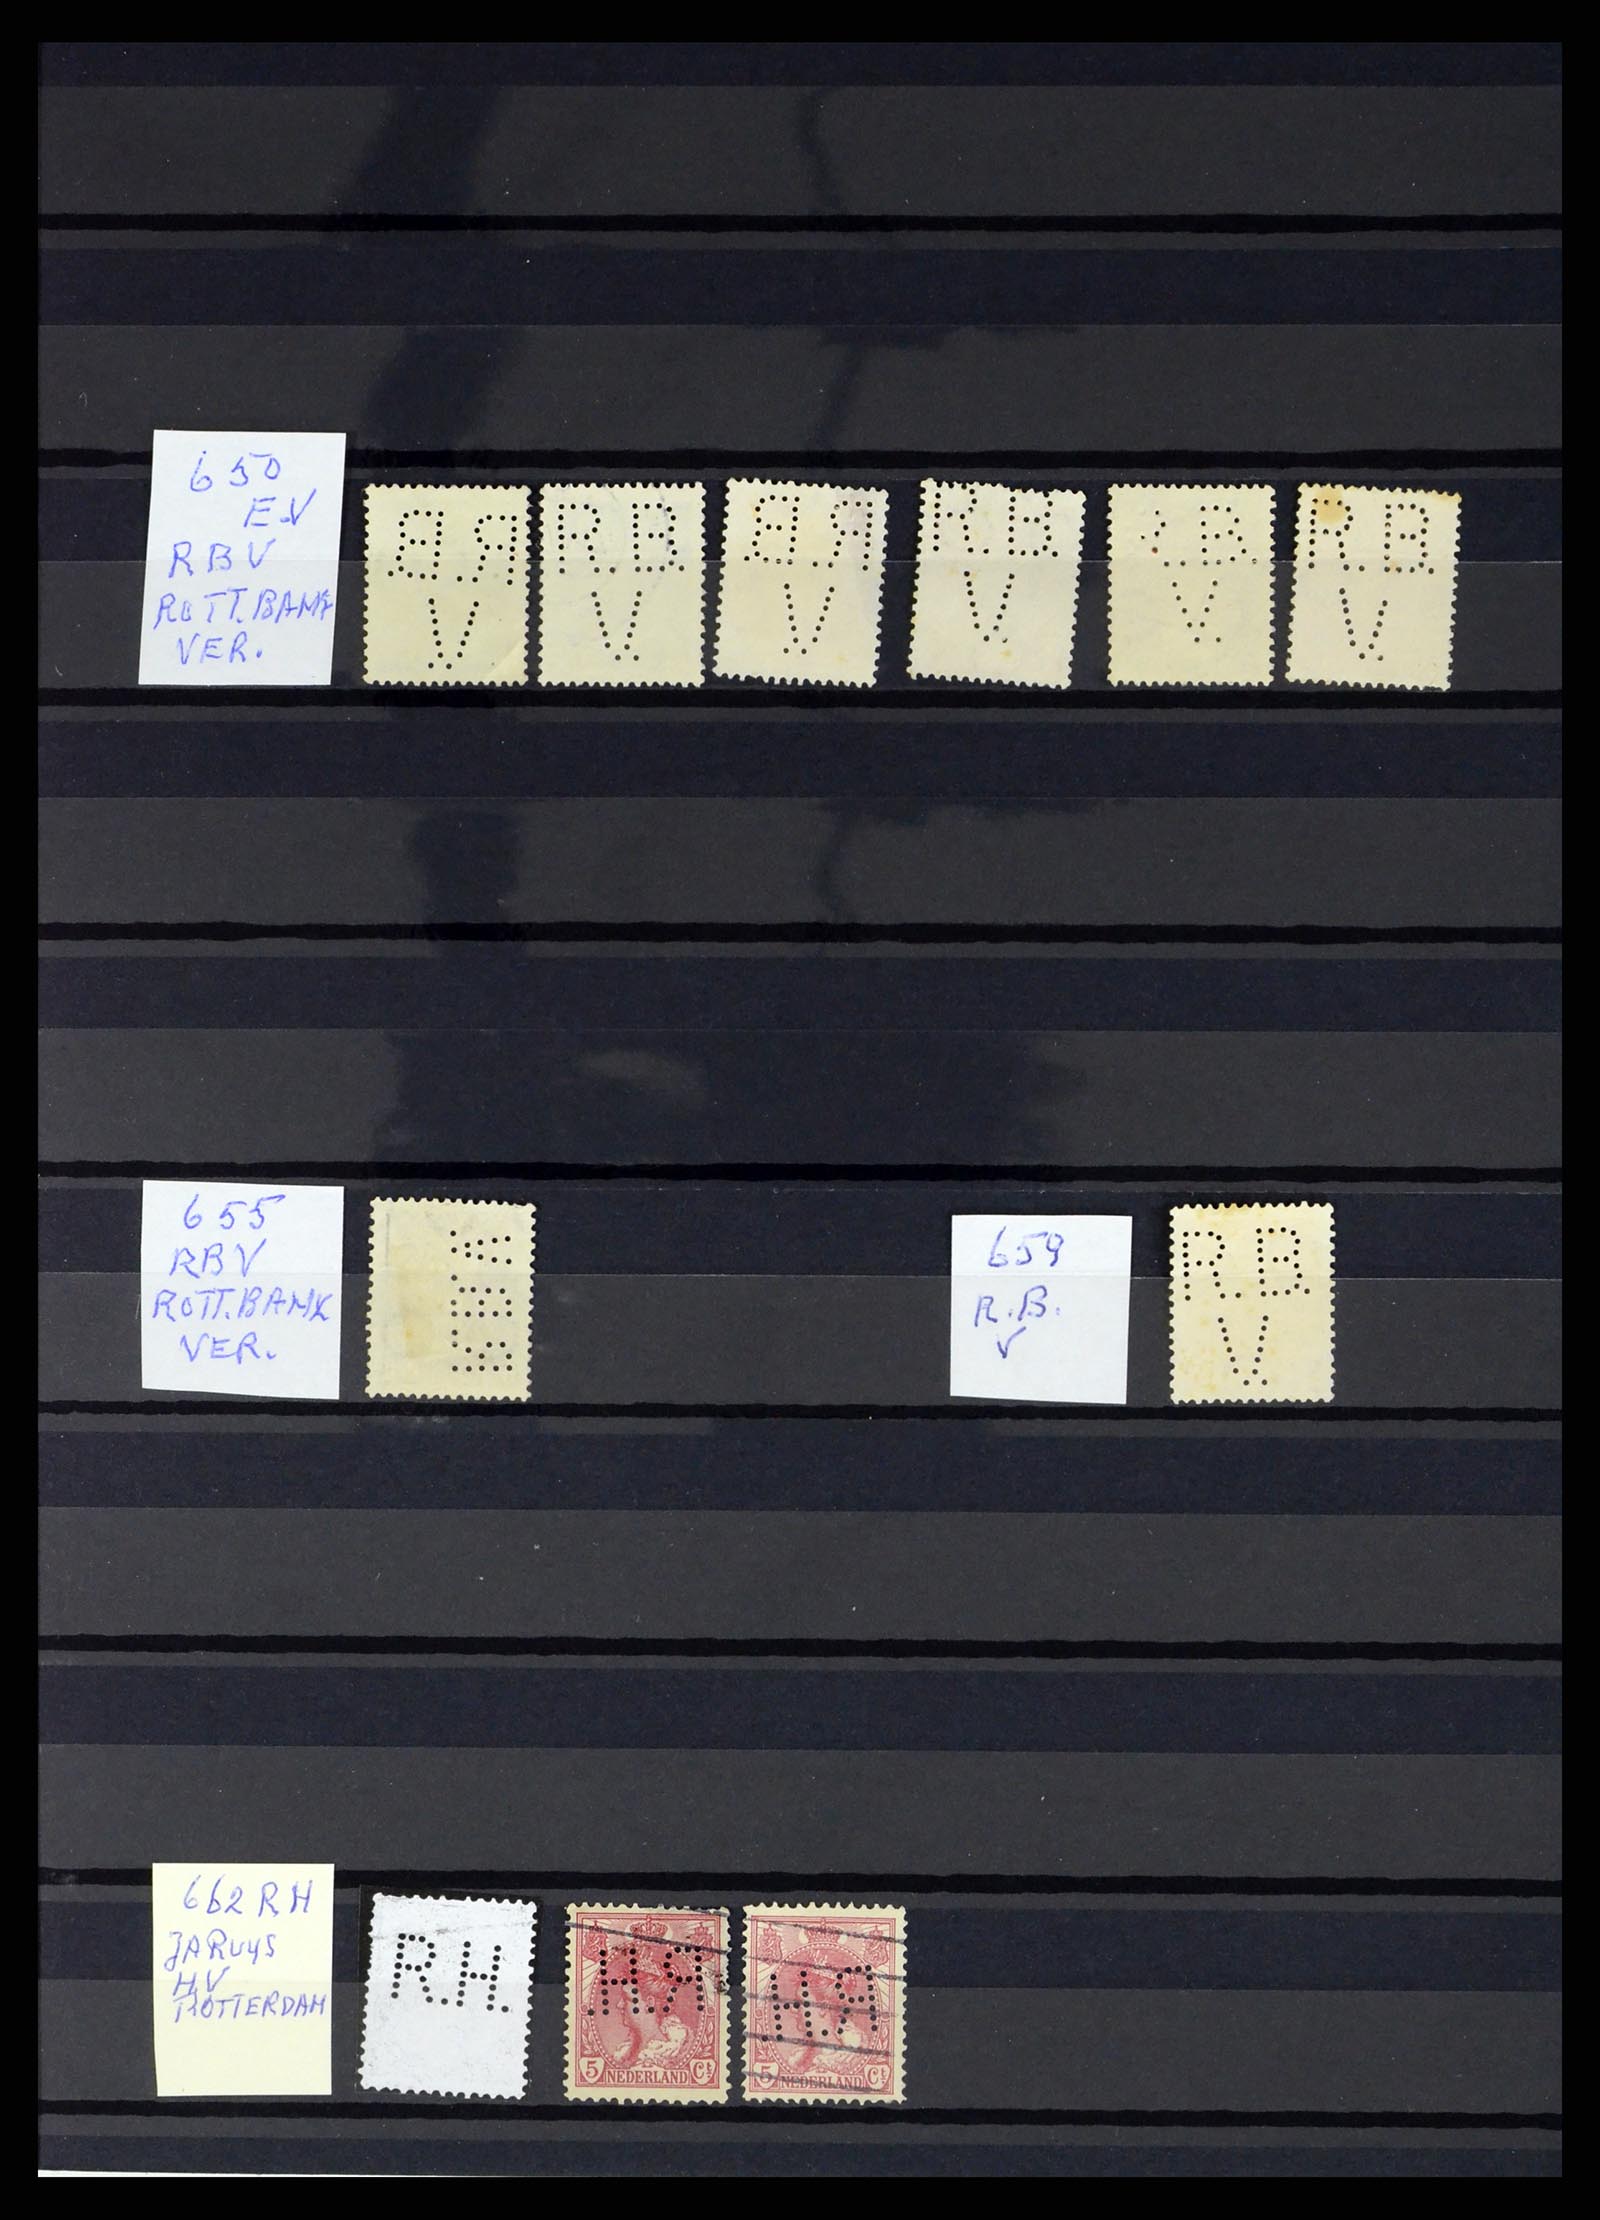 650
E.V
RBV
ROTT.BANK
VER.
R.B.
V
R.B.
V
R.B.
V
R.B.
V
R.B.
V
R.B.
V
655
RBV
ROTT.BANK
VER.
659
R.B.
V
R.B.
V
662 R H
H.V
ROTTERDAM
R.H.
R.H.
5 NEDERLAND Ct
R.H.
5 NEDERLAND Ct